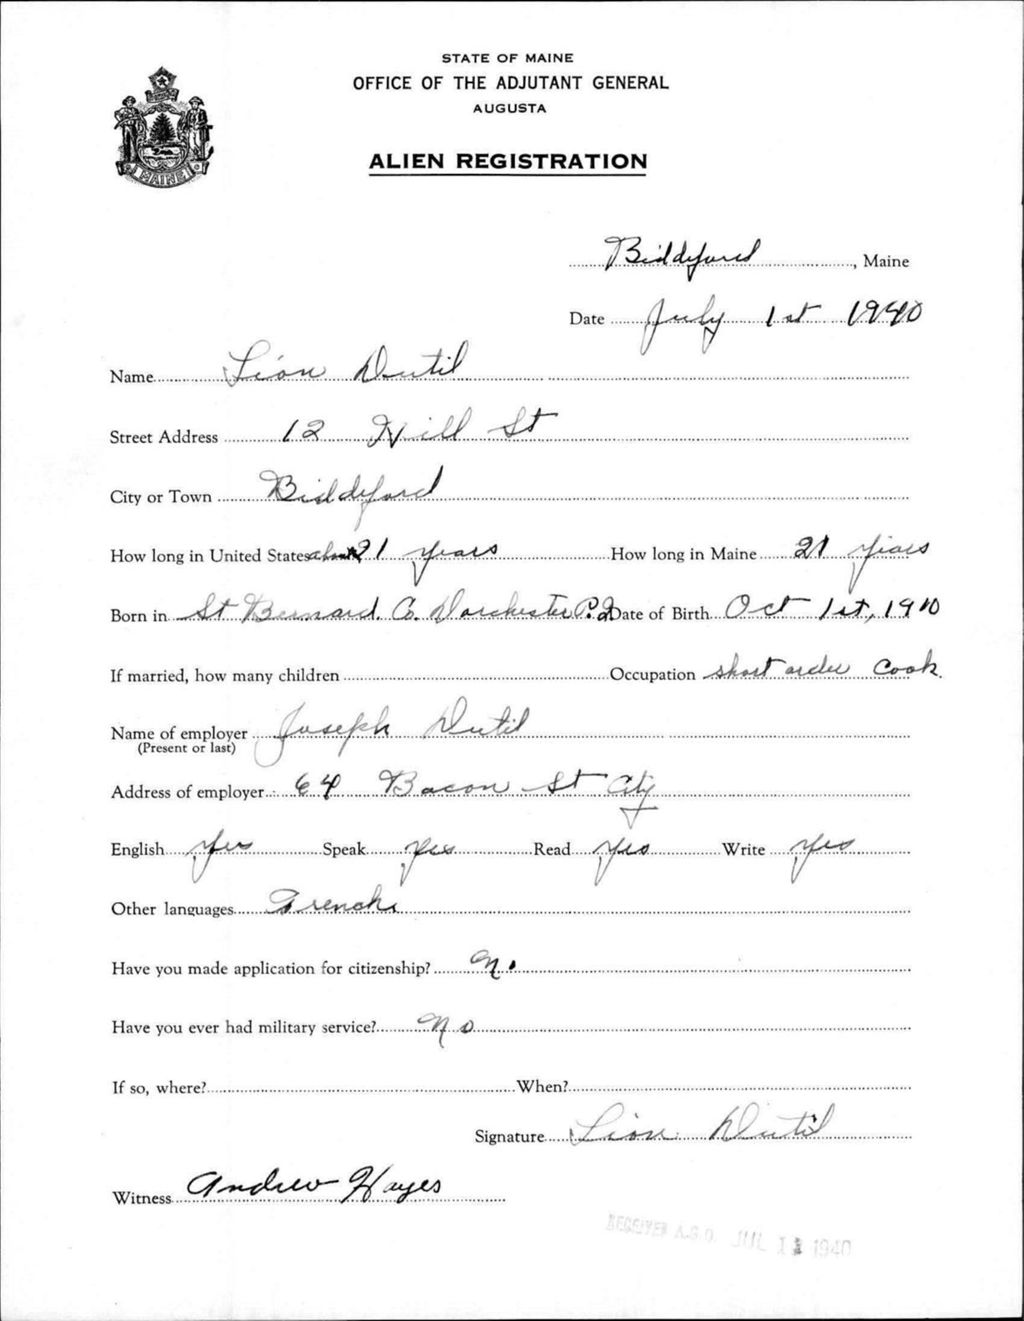 STATE OF MAINE
OFFICE OF THE ADJUTANT GENERAL
AUGUSTA
ALIEN REGISTRATION
MAINE
Biddeford, Maine
Date July 1st 1940
Name Léon Dutil
Street Address 12 Hill St
City or Town Biddeford
How long in United States about 21 years How long in Maine 21 years
Born in St Bernard. Co. Dorchester P.Q Date of Birth Oct 1st, 1910
If married, how many children Occupation short order cook.
Name of employer Joseph Dutil
(Present or last)
Address of employer 64 Bacon St City
English Yes Speak Yes Read Yes Write Yes
Other languages French
Have you made application for citizenship? No
Have you ever had military service? No
If so, where? When?
Signature Léon Dutil
Witness Andrew Hayes
RECEIVED A.G.O. JUL 1940